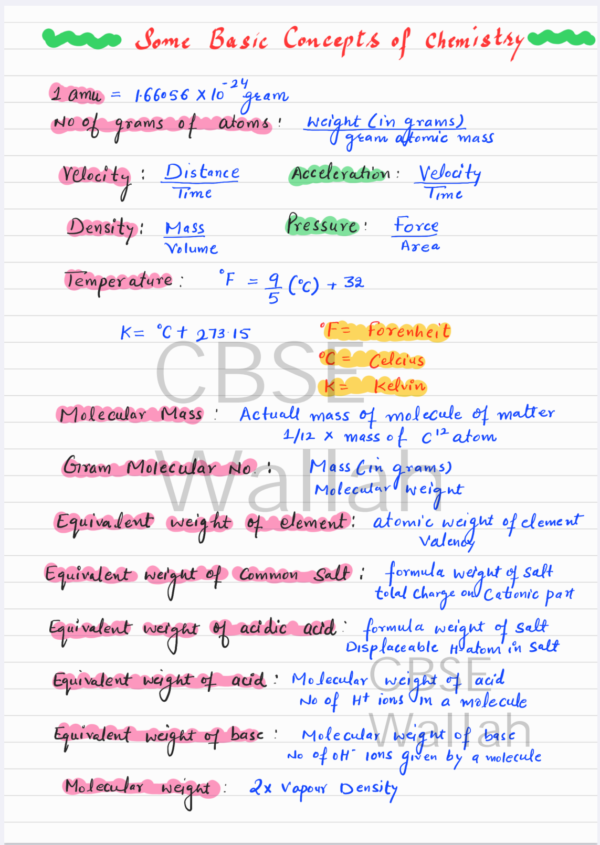 Some Basic Concepts of Chemistry
1 amu = 1.66056 X 10^-24 gram
No of grams of atoms : Weight (in grams)
gram atomic mass
Velocity : Distance
Time
Acceleration : Velocity
Time
Density : Mass
Volume
Pressure : Force
Area
Temperature : °F = 9/5 (°C) + 32
K = °C + 273.15
°F = Forenheit
°C = Celcius
K = Kelvin
CBSE
Wallah
Molecular Mass : Actuall mass of molecule of matter
1/12 x mass of C^12 atom
Gram Molecular No. : Mass (in grams)
Molecular weight
Equivalent weight of element : atomic weight of element
Valency
Equivalent weight of Common Salt : formula weight of salt
total charge on Cationic part
Equivalent weight of acidic acid : formula weight of salt
Displaceable H atom in salt
CBSE
Wallah
Equivalent weight of acid : Molecular weight of acid
No of H+ ions in a molecule
Equivalent weight of base : Molecular weight of base
No of OH- ions given by a molecule
Molecular weight : 2x Vapour Density